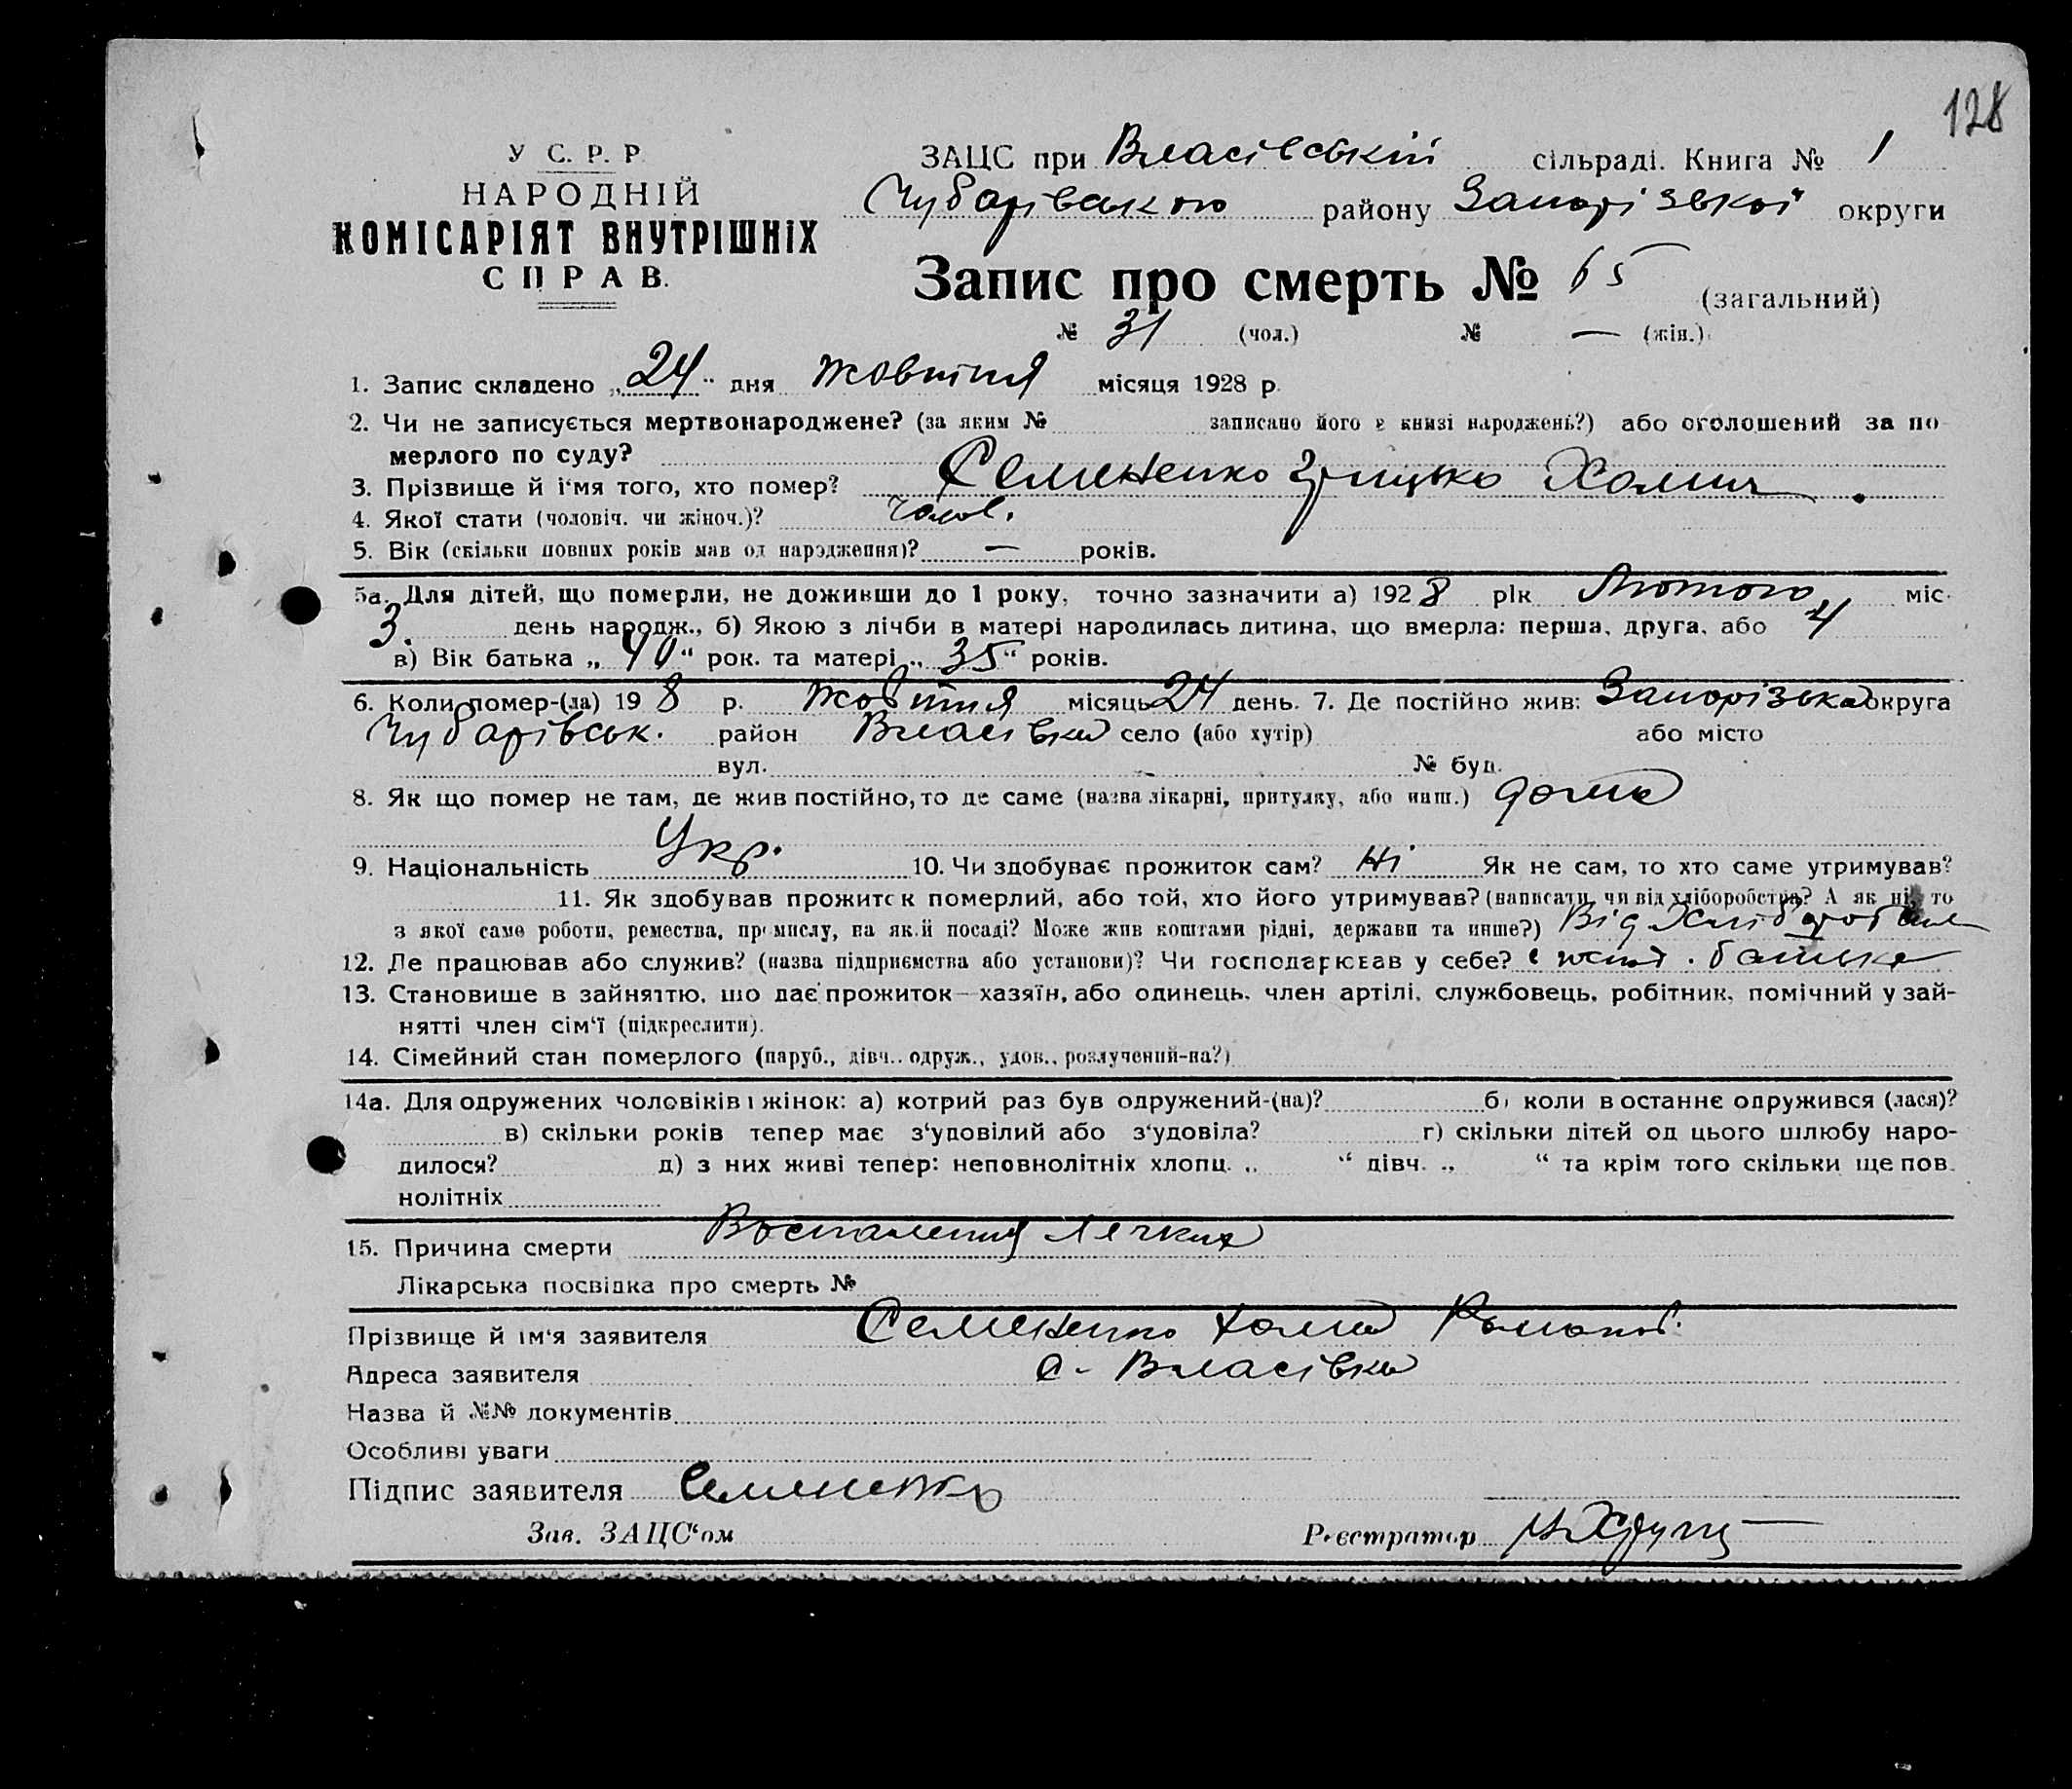 128
У С. Р. Р
НАРОДНІЙ
КОМІСАРІЯТ ВНУТРІШНІХ
СПРАВ.
ЗАЦС при Власівській сільраді. Книга № 1
Чубарівського району Запорізької округи
Запис про смерть № 65 (загальний)
№ 31 (чол.) № — (жін.)
1. Запис складено „24“ дня жовтня місяця 1928 р.
2. Чи не записується мертвонароджене? (за яким № записано його в книзі народжень?) або оголошений за по
мерлого по суду?
3. Прізвище й і'мя того, хто помер? Семененко Грицько Хомич.
4. Якої стати (чоловіч. чи жіноч.)? чолов.
5. Вік (скільки повних років мав од народження)? — років.
5а. Для дітей, що померли, не доживши до 1 року, точно зазначити а) 1928 рік Лютого міс.
3. день народж., б) Якою з лічби в матері народилась дитина, що вмерла: перша, друга, або 4
в) Вік батька „40“ рок. та матері „35“ років.
6. Коли помер-(ла) 19 8 р. жовтня місяць 24 день. 7. Де постійно жив: Запорізька округа
Чубарівськ. район Власівка село (або хутір) або місто
вул. № буд.
8. Як що помер не там, де жив постійно, то де саме (назва лікарні, притулку, або инш.) дома
9. Національність Укр. 10. Чи здобуває прожиток сам? Ні Як не сам, то хто саме утримував?
11. Як здобував прожиток померлий, або той, хто його утримував? (написати, чи від хліборобства? А як ні, то
з якої саме роботи, ремества, промислу, на якій посаді? Може жив коштами рідні, держави та инше?) Від
12. Де працював або служив? (назва підприємства або установи)? Чи господарював у себе? в господ. батька
13. Становище в зайняттю, що дає прожиток — хазяїн, або одинець, член артілі, службовець, робітник, помічний у зай-
нятті член сім'ї (підкреслити).
14. Сімейний стан померлого (паруб., дівч., одруж., удов., розлучений-на?)
14а. Для одружених чоловіків і жінок: а) котрий раз був одружений-(на)? б) коли в останнє одружився (лася)?
в) скільки років тепер має з'удовілий або з'удовіла? г) скільки дітей од цього шлюбу наро-
дилося? д) з них живі тепер: неповнолітніх хлопц. „ “ дівч. „ “ та крім того скільки ще пов.
нолітніх
15. Причина смерти Воспаления Легких
Лікарська посвідка про смерть №
Прізвище й ім'я заявителя Семененко Хома Романов.
Адреса заявителя с. Власівка
Назва й №№ документів
Особливі уваги
Підпис заявителя Семененко
Зав. ЗАЦС'ом Реєстратор